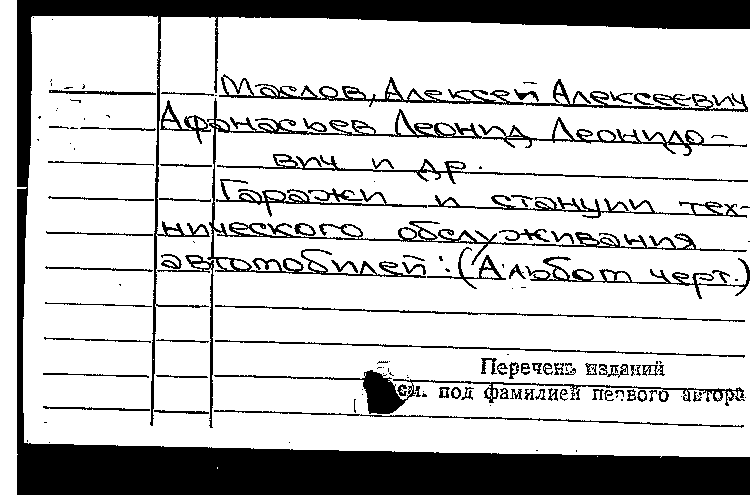 Маслов, Алексей Алексеевич
Афанасьев Леонид Леонидо-
вич и др.
Гаражи и станции тех-
нического обслуживания
автомобилей: (Альбом черт.)
Перечень изданий
см. под фамилией первого автора